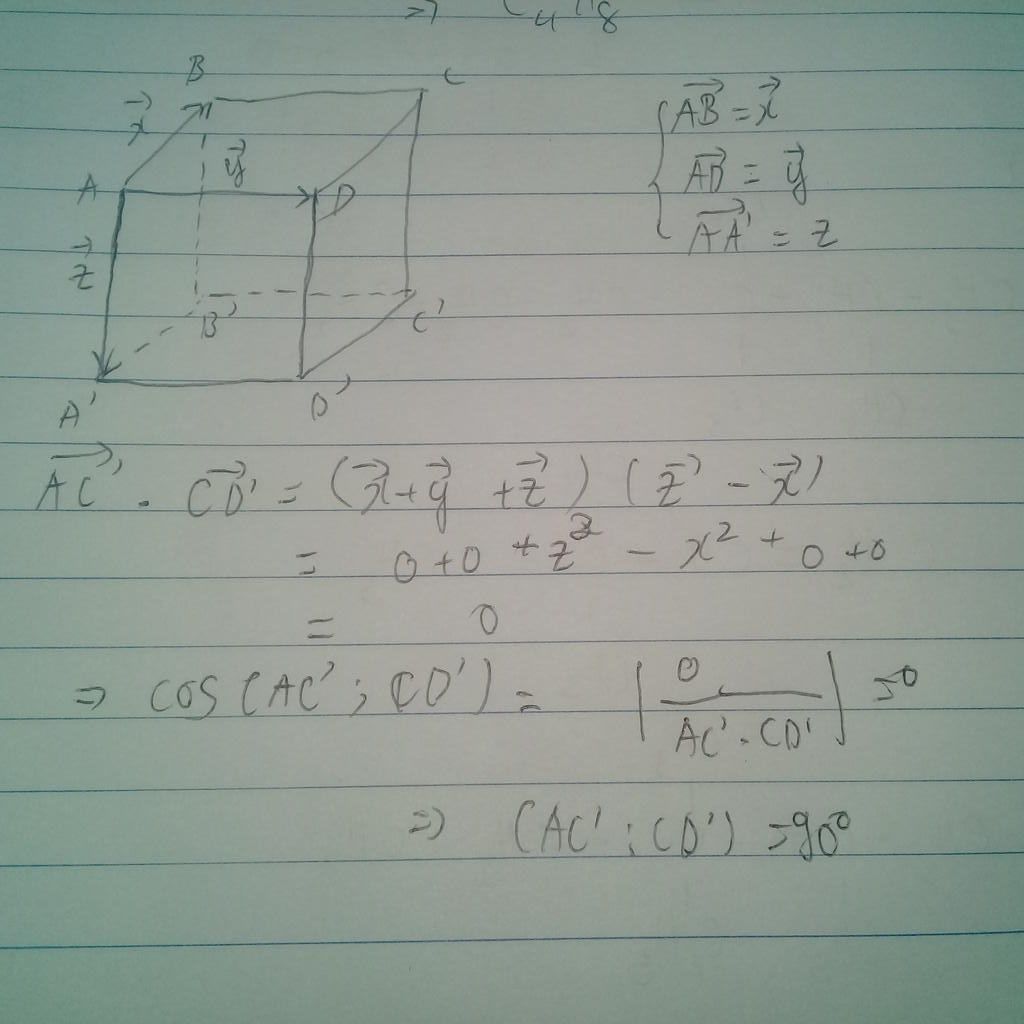 => C₄H₈
B
C
x⃗
y⃗
A
D
z⃗
B'
C'
A'
D'
{ AB⃗ = x⃗
AD⃗ = y⃗
AA'⃗ = z
AC'⃗ . CD'⃗ = (x⃗ + y⃗ + z⃗) (z⃗ - x⃗)
= 0 + 0 + z² - x² + 0 + 0
= 0
=> cos (AC' ; CD') = | 0 / AC' . CD' | = 0
=> (AC' ; CD') = 90°